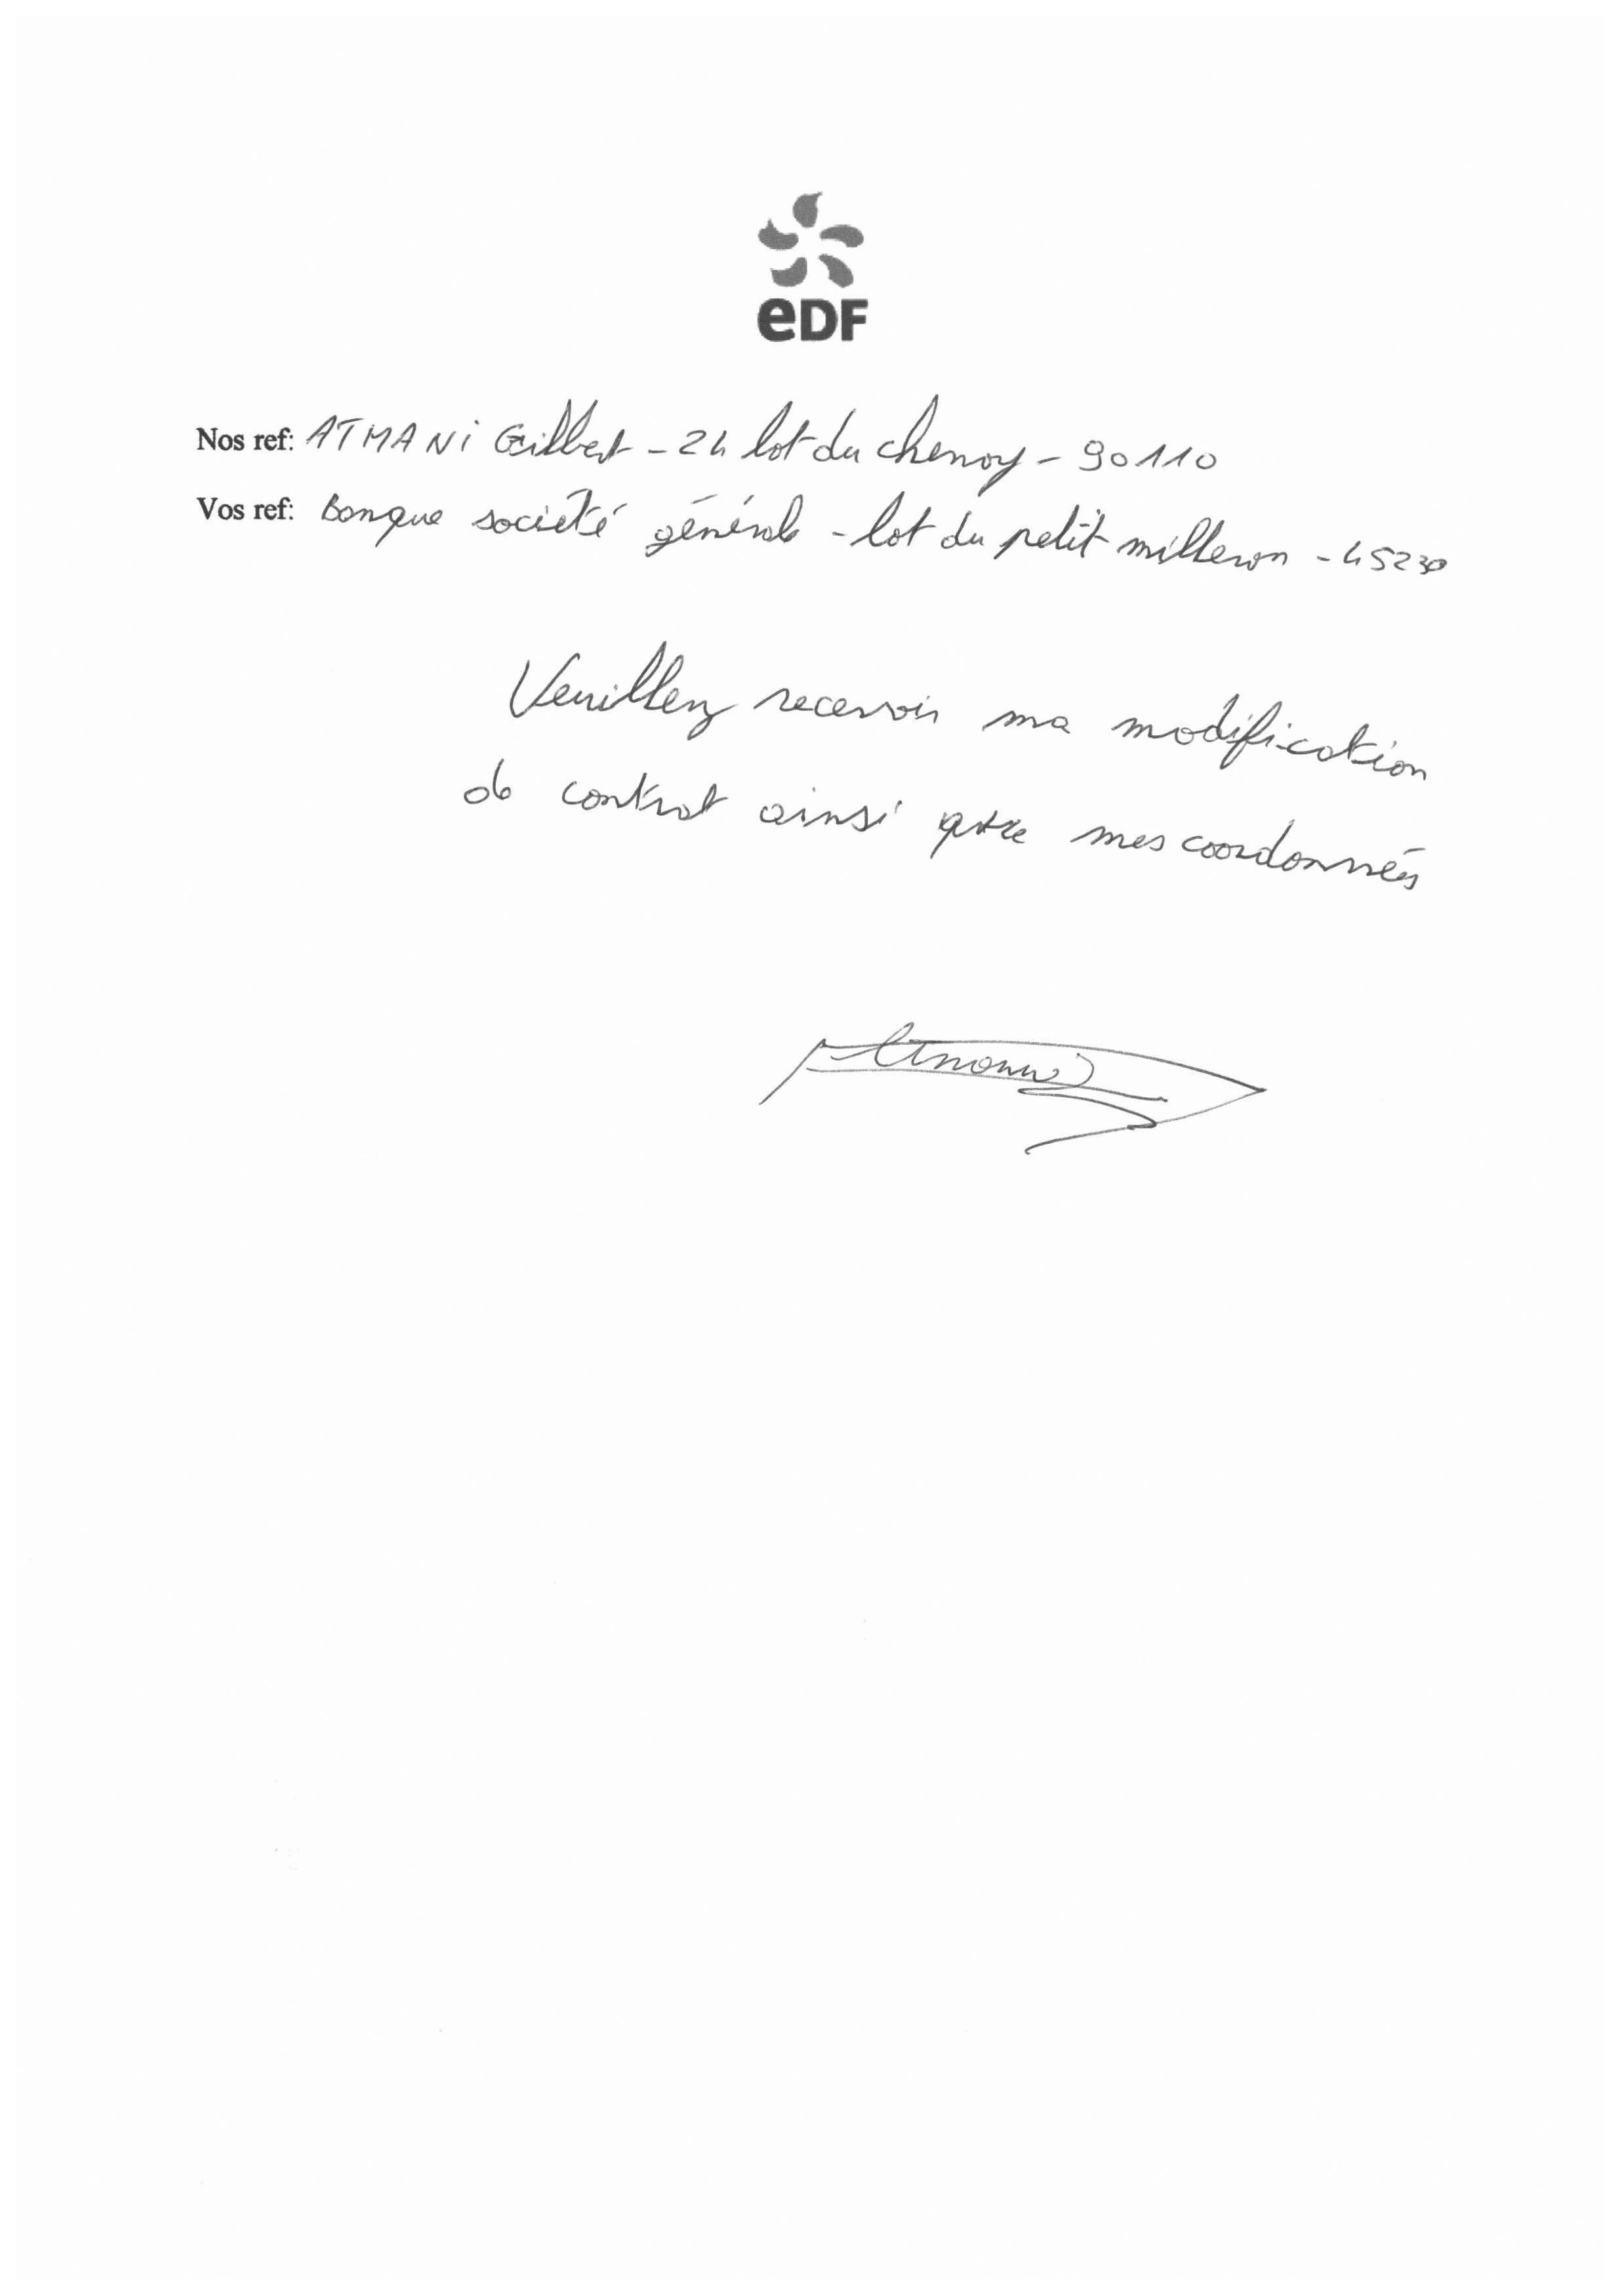 eDF
Nos ref: ATMANI Gilbert - 24 lot du chenoy - 90110
Vos ref: Banque société générale - lot du petit milleron - 45230
Veuillez recevoir ma modification
de contrat ainsi que mes coordonnées
Atmani